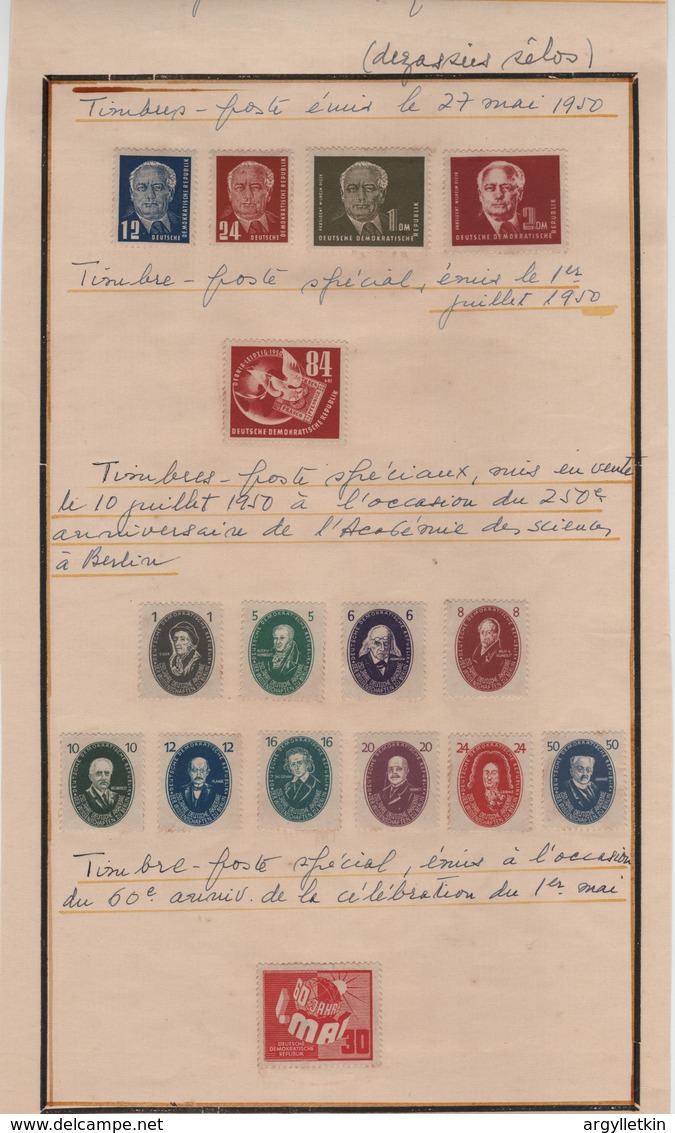 (dezasseis sêlos)
Timbres - poste émis le 27 mai 1950
12
DEUTSCHE
DEMOKRATISCHE
REPUBLIK
24
DEUTSCHE
DEMOKRATISCHE
REPUBLIK
PRÄSIDENT WILHELM PIECK
1 DM
DEUTSCHE DEMOKRATISCHE REPUBLIK
PRÄSIDENT WILHELM PIECK
2 DM
DEUTSCHE DEMOKRATISCHE REPUBLIK
Timbre - poste spécial, émis le 1er
juillet 1950
DEBRIA - LEIPZIG 1950
84
DEUTSCHE DEMOKRATISCHE REPUBLIK
Timbres - poste spéciaux, mis en vente
le 10 juillet 1950 à l'occasion du 250e
anniversaire de l'Académie des sciences
à Berlin
1 1
5 5
6 6
8 8
10 10
12 12
PLANCK
16 16
20 20
24 24
50 50
Timbre - poste spécial, émis à l'occasion
du 60e anniv. de la célébration du 1er mai
60 JAHRE
1. MAI
30
DEUTSCHE
DEMOKRATISCHE
REPUBLIK
argylletkin